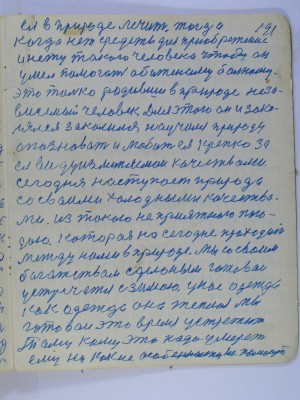 191
ел в природе лечит, тогда
когда нет средств для приобретений
и нету такого человека чтобы он
умел помогать обиженому больному.
это только родивши в природе неза-
висемый человек. Для этого он и зака-
лялся закалился научился природу
опозновать и любится крепко за
сегодня наступает природа
со своими холодными качества-
ми. из такого не приятного
которая на сегодня проходит
между нами в природе. Мы со своим
богатством сделоным готовы
устречится с зимою. у нас одежда
как одежда она теплая мы
готовы это время устретит
Тому кому это надо умереть
ему ни какие особенности не помогут